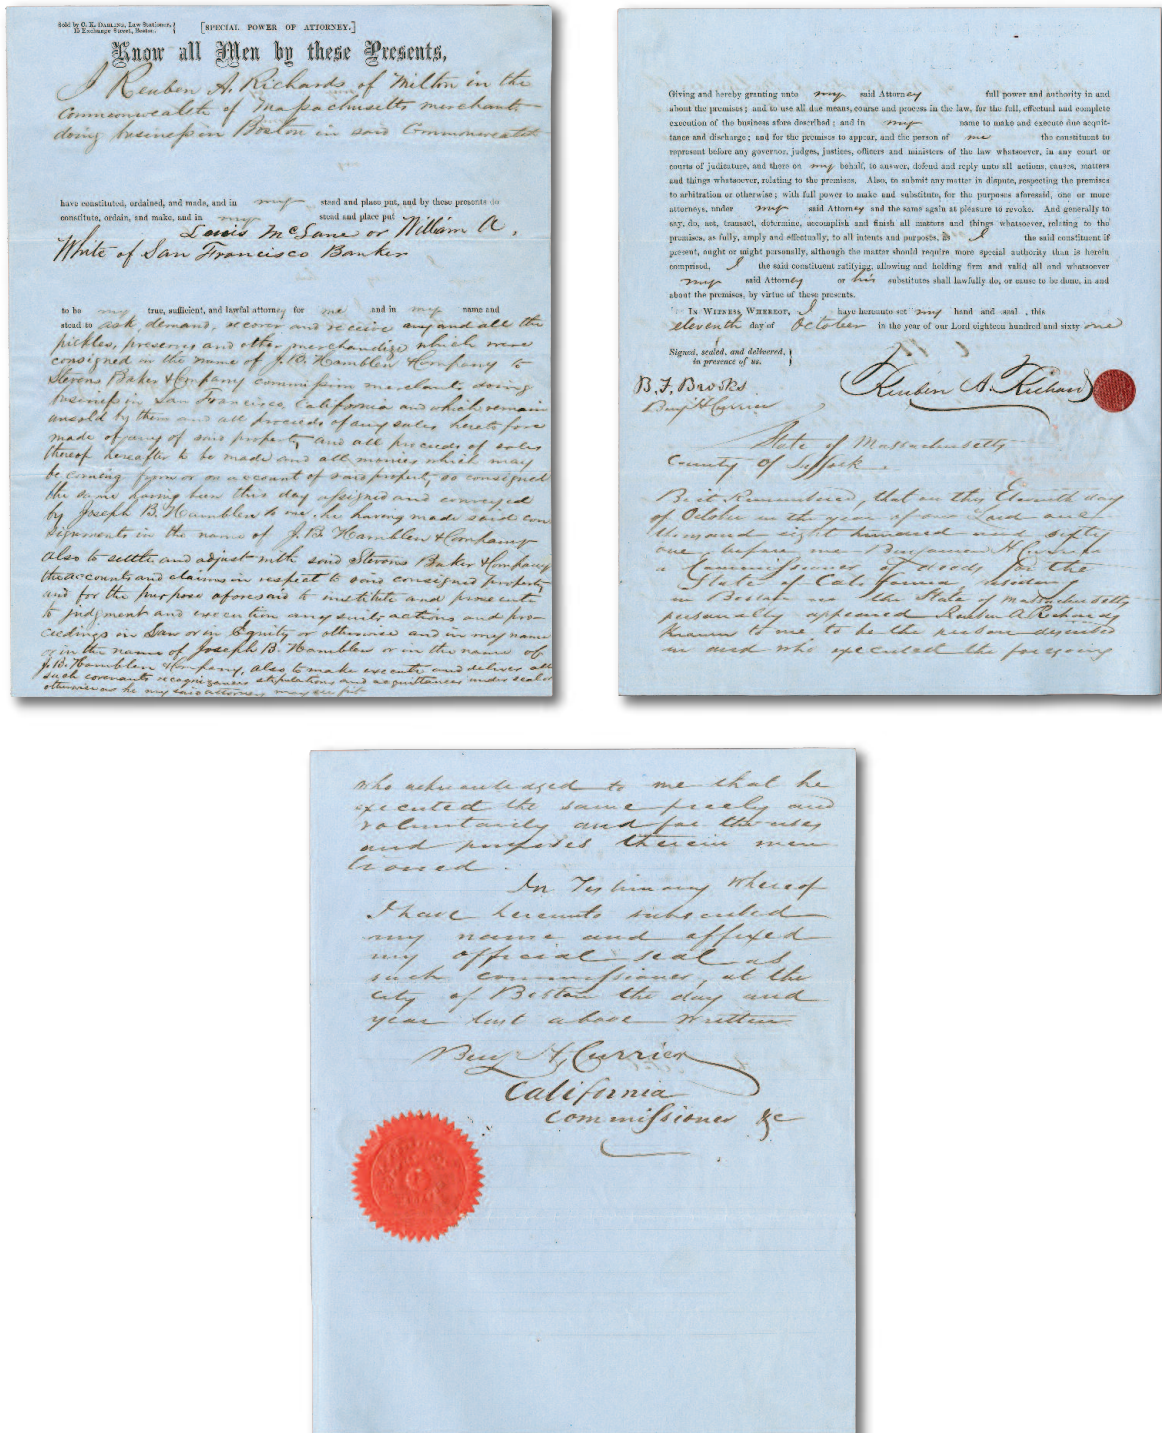 Sold by C. K. DARLING, Law Stationer,
15 Exchange Street, Boston.
[SPECIAL POWER OF ATTORNEY.]
Know all Men by these Presents,
I Reuben A. Richards of Milton in the
commonwealth of Massachusetts merchant
doing business in Boston in said Commonwealth
have constituted, ordained, and made, and in my stead and place put, and by these presents do
constitute, ordain, and make, and in my stead and place put
Lewis McLane or William A.
White of San Francisco Banker
to be my true, sufficient, and lawful attorney for me and in my name and
stead to ask, demand, recover and receive any and all the
pickles, preserves and other merchandize which were
consigned in the name of J. B. Hamblen & Company to
Stevens Baker & Company commission merchants, doing
business in San Francisco, California and which remain
unsold by them and all proceeds of any sales heretofore
made of any of said property and all proceeds of sales
thereof hereafter to be made and all monies which may
be coming from or on account of said property, so consigned
the same having been this day assigned and conveyed
by Joseph B. Hamblen to me, he having made said con
signments in the name of J. B. Hamblen & Company
also to settle and adjust with said Stevens Baker & Company
the accounts and claims in respect to said consigned property
and for the purpose aforesaid to institute and prosecute
to judgment and execution any suits actions and pro-
ceedings in Law or in Equity or otherwise and in my name
or in the name of Joseph B. Hamblen or in the name of
J. B. Hamblen & Company, also to make execute and deliver all
such covenants recognizances stipulations and acquittances under seal or
otherwise as he my said attorney may see fit
Giving and hereby granting unto my said Attorney full power and authority in and
about the premises; and to use all due means, course and process in the law, for the full, effectual and complete
execution of the business afore described; and in my name to make and execute due acquit-
tance and discharge; and for the premises to appear, and the person of me the constituent to
represent before any governor, judges, justices, officers and ministers of the law whatsoever, in any court or
courts of judicature, and there on my behalf, to answer, defend and reply unto all actions, causes, matters
and things whatsoever, relating to the premises. Also, to submit any matter in dispute, respecting the premises
to arbitration or otherwise; with full power to make and substitute, for the purposes aforesaid, one or more
attorneys, under my said Attorney and the same again at pleasure to revoke. And generally to
say, do, act, transact, determine, accomplish and finish all matters and things whatsoever, relating to the
premises, as fully, amply and effectually, to all intents and purposes, as I the said constituent if
present, ought or might personally, although the matter should require more special authority than is herein
comprised, I the said constituent ratifying, allowing and holding firm and valid all and whatsoever
my said Attorney or his substitutes shall lawfully do, or cause to be done, in and
about the premises, by virtue of these presents.
IN WITNESS WHEREOF, I have hereunto set my hand and seal, this
eleventh day of October in the year of our Lord eighteen hundred and sixty one
Signed, sealed, and delivered,
in presence of us.
B. F. Brooks
Benj H Currier
Reuben A. Richards
State of Massachusetts
County of Suffolk
Be it Remembered, that on this Eleventh day
of October in the year of our Lord one
thousand eight hundred and sixty
one, before me Benjamin H Currier
a Commissioner of Deeds for the
State of California, residing
in Boston in the State of Massachusetts
personally appeared Reuben A Richards
known to me to be the person described
in and who executed the foregoing
who acknowledged to me that he
executed the same freely and
voluntarily and for the uses
and purposes therein men
tioned.
In Testimony Whereof
I have hereunto subscribed
my name and affixed
my official seal as
such commissioner, at the
city of Boston the day and
year last above written
Benj H, Currier
California
Commissioner &c